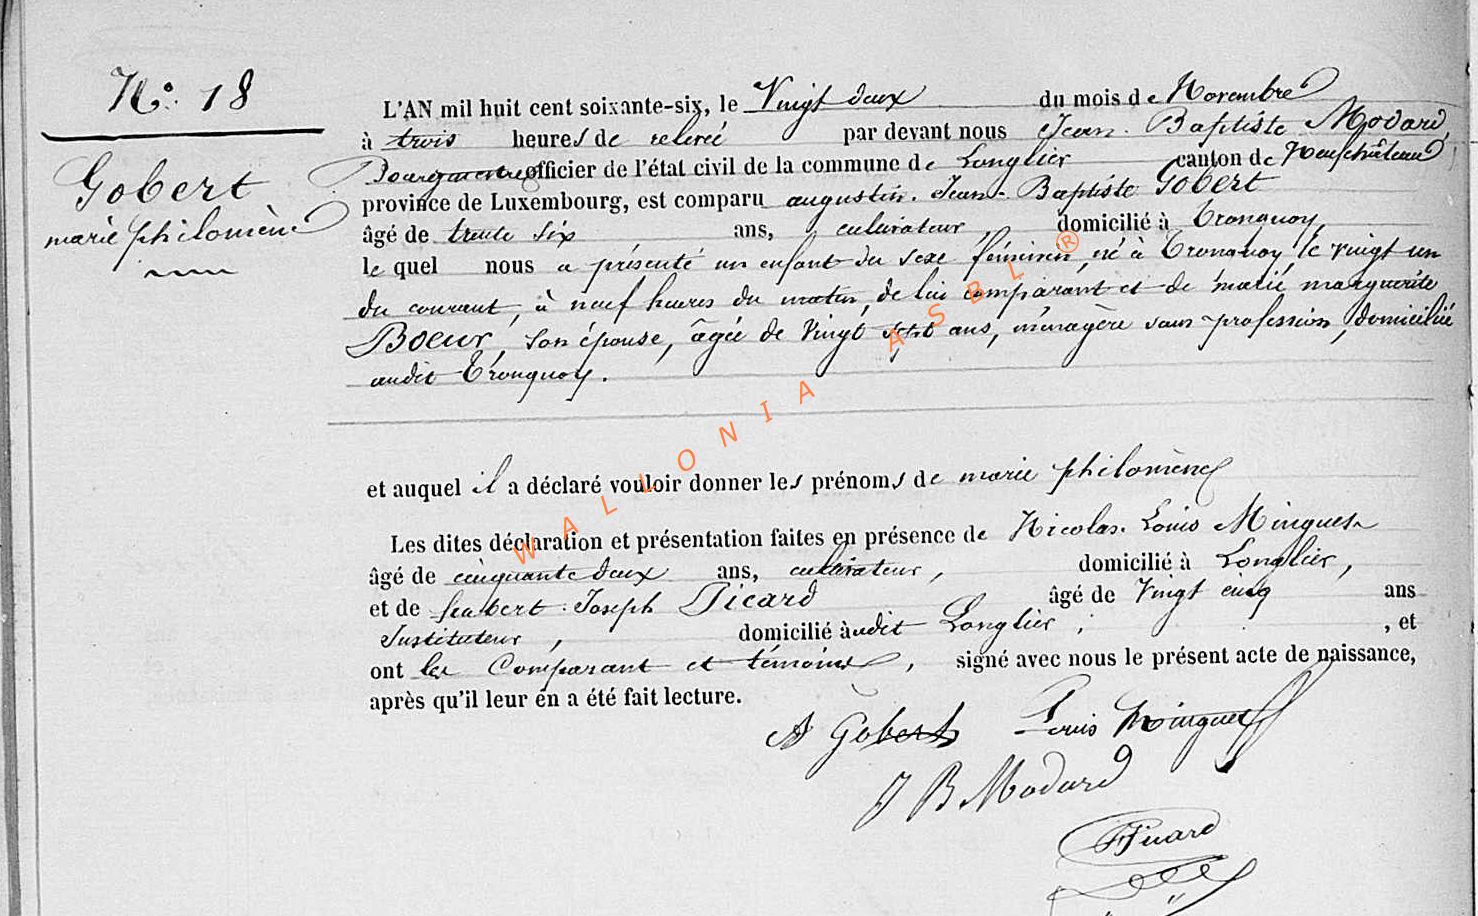 N.o 18
Gobert
marie philomène
L'AN mil huit cent soixante-six, le Vingt deux du mois de Novembre
à trois heures de relevée par devant nous Jean-Baptiste Modard,
Bourgmestre officier de l'état civil de la commune de Longlier canton de Neufchâteau
province de Luxembourg, est comparu augustin-Jean-Baptiste Gobert
âgé de trente six ans, cultivateur, domicilié à Tronquoy,
le quel nous a présenté un enfant du sexe féminin, né à Tronquoy, le vingt un
du courant, à neuf heures du matin, de lui comparant et de marie marguerite
Boeur, son épouse, âgée de Vingt sept ans, ménagère sans profession, domiciliée
audit Tronquoy.
et auquel il a déclaré vouloir donner les prénoms de marie philomène
Les dites déclaration et présentation faites en présence de Nicolas-Louis Minguet
âgé de cinquante deux ans, cultivateur, domicilié à Longlier,
et de hubert-Joseph Picard âgé de Vingt cinq ans
Instituteur, domicilié audit Longlier ; , et
ont les Comparant et témoins, signé avec nous le présent acte de naissance,
après qu'il leur en a été fait lecture.
A Gobert Louis Minguet
J B Modard
Picard
WALLONIA ASBL ®